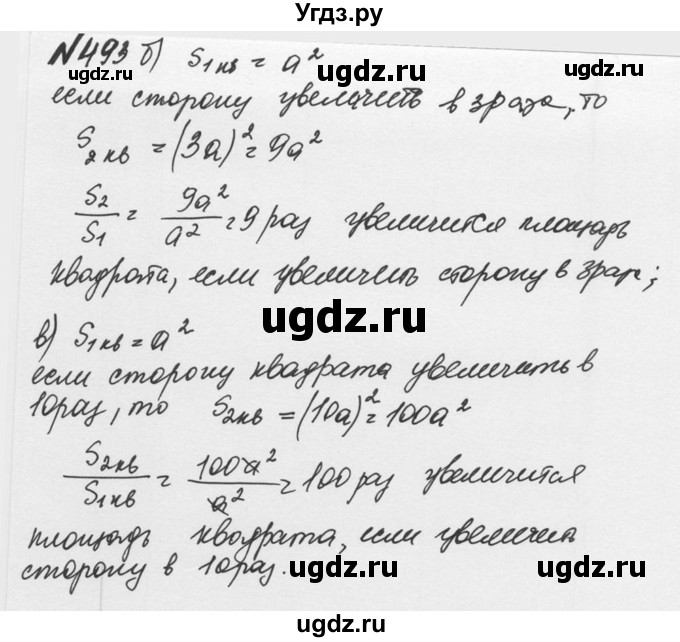 Угдз.ру
№493 б) S₁кв = a²
ugdz.ru ugdz.ru
если сторону увеличить в 3 раза, то
S₂кв = (3a)² = 9a²
ugdz.ru
S₂/S₁ = 9a²/a² = 9 раз увеличится площадь
ugdz.ru ugdz.ru
квадрата, если увеличить сторону в 3 раза;
ugdz.ru
в) S₁кв = a²
ugdz.ru ugdz.ru
если сторону квадрата увеличить в
10 раз, то S₂кв = (10a)² = 100a²
ugdz.ru
S₂кв/S₁кв = 100a²/a² = 100 раз увеличится
ugdz.ru ugdz.ru
площадь квадрата, если увеличить
сторону в 10 раз.
ugdz.ru ugdz.ru
ugdz.ru